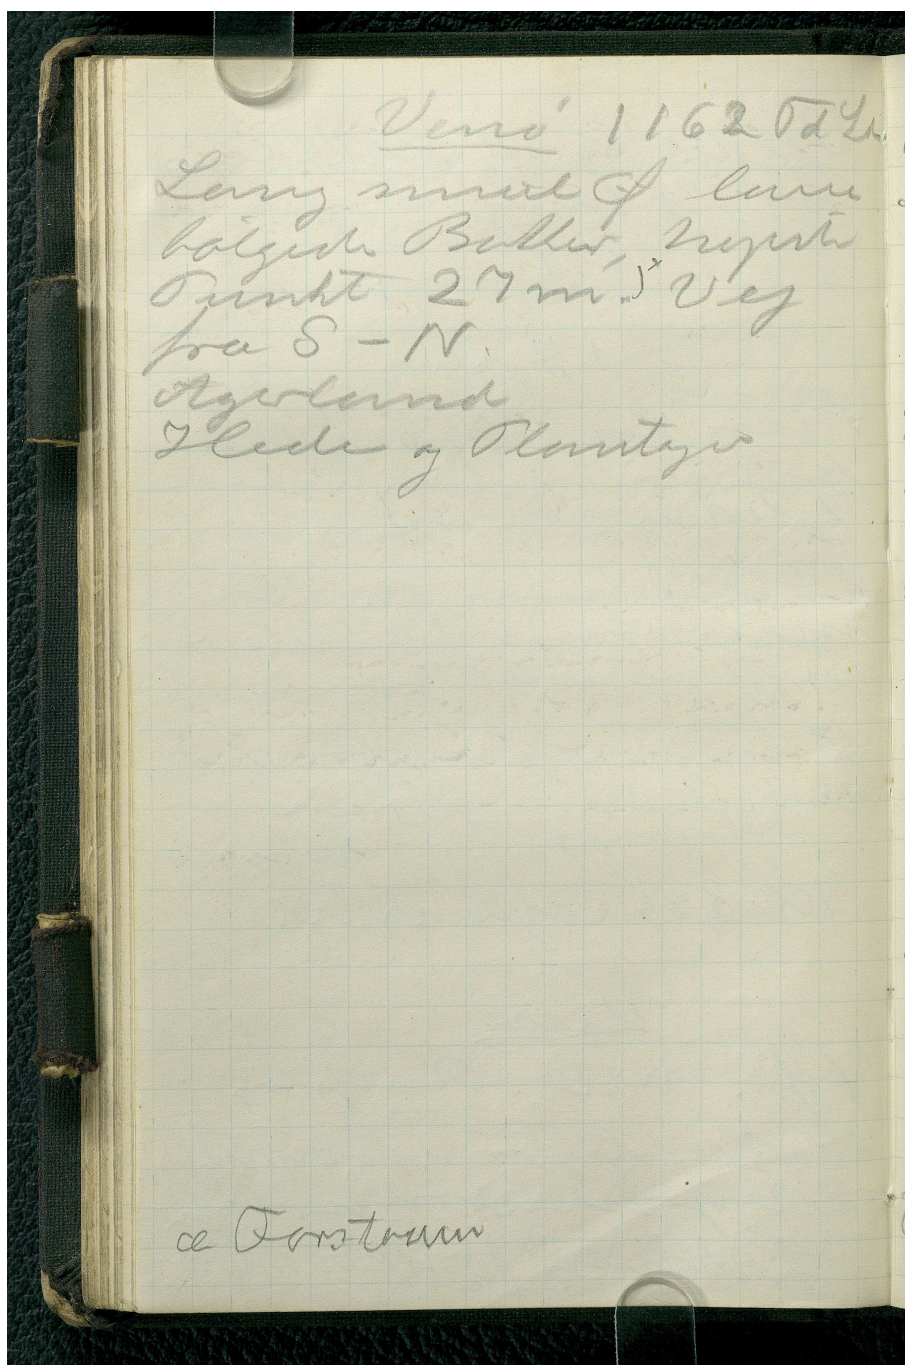 Venø 1162 Td Ld
Lang smal Ø lave
bølgede Bakker, højeste
Punkt 27 m. Vej
fra S - N.
Agerland
Hede og Plantager
æ